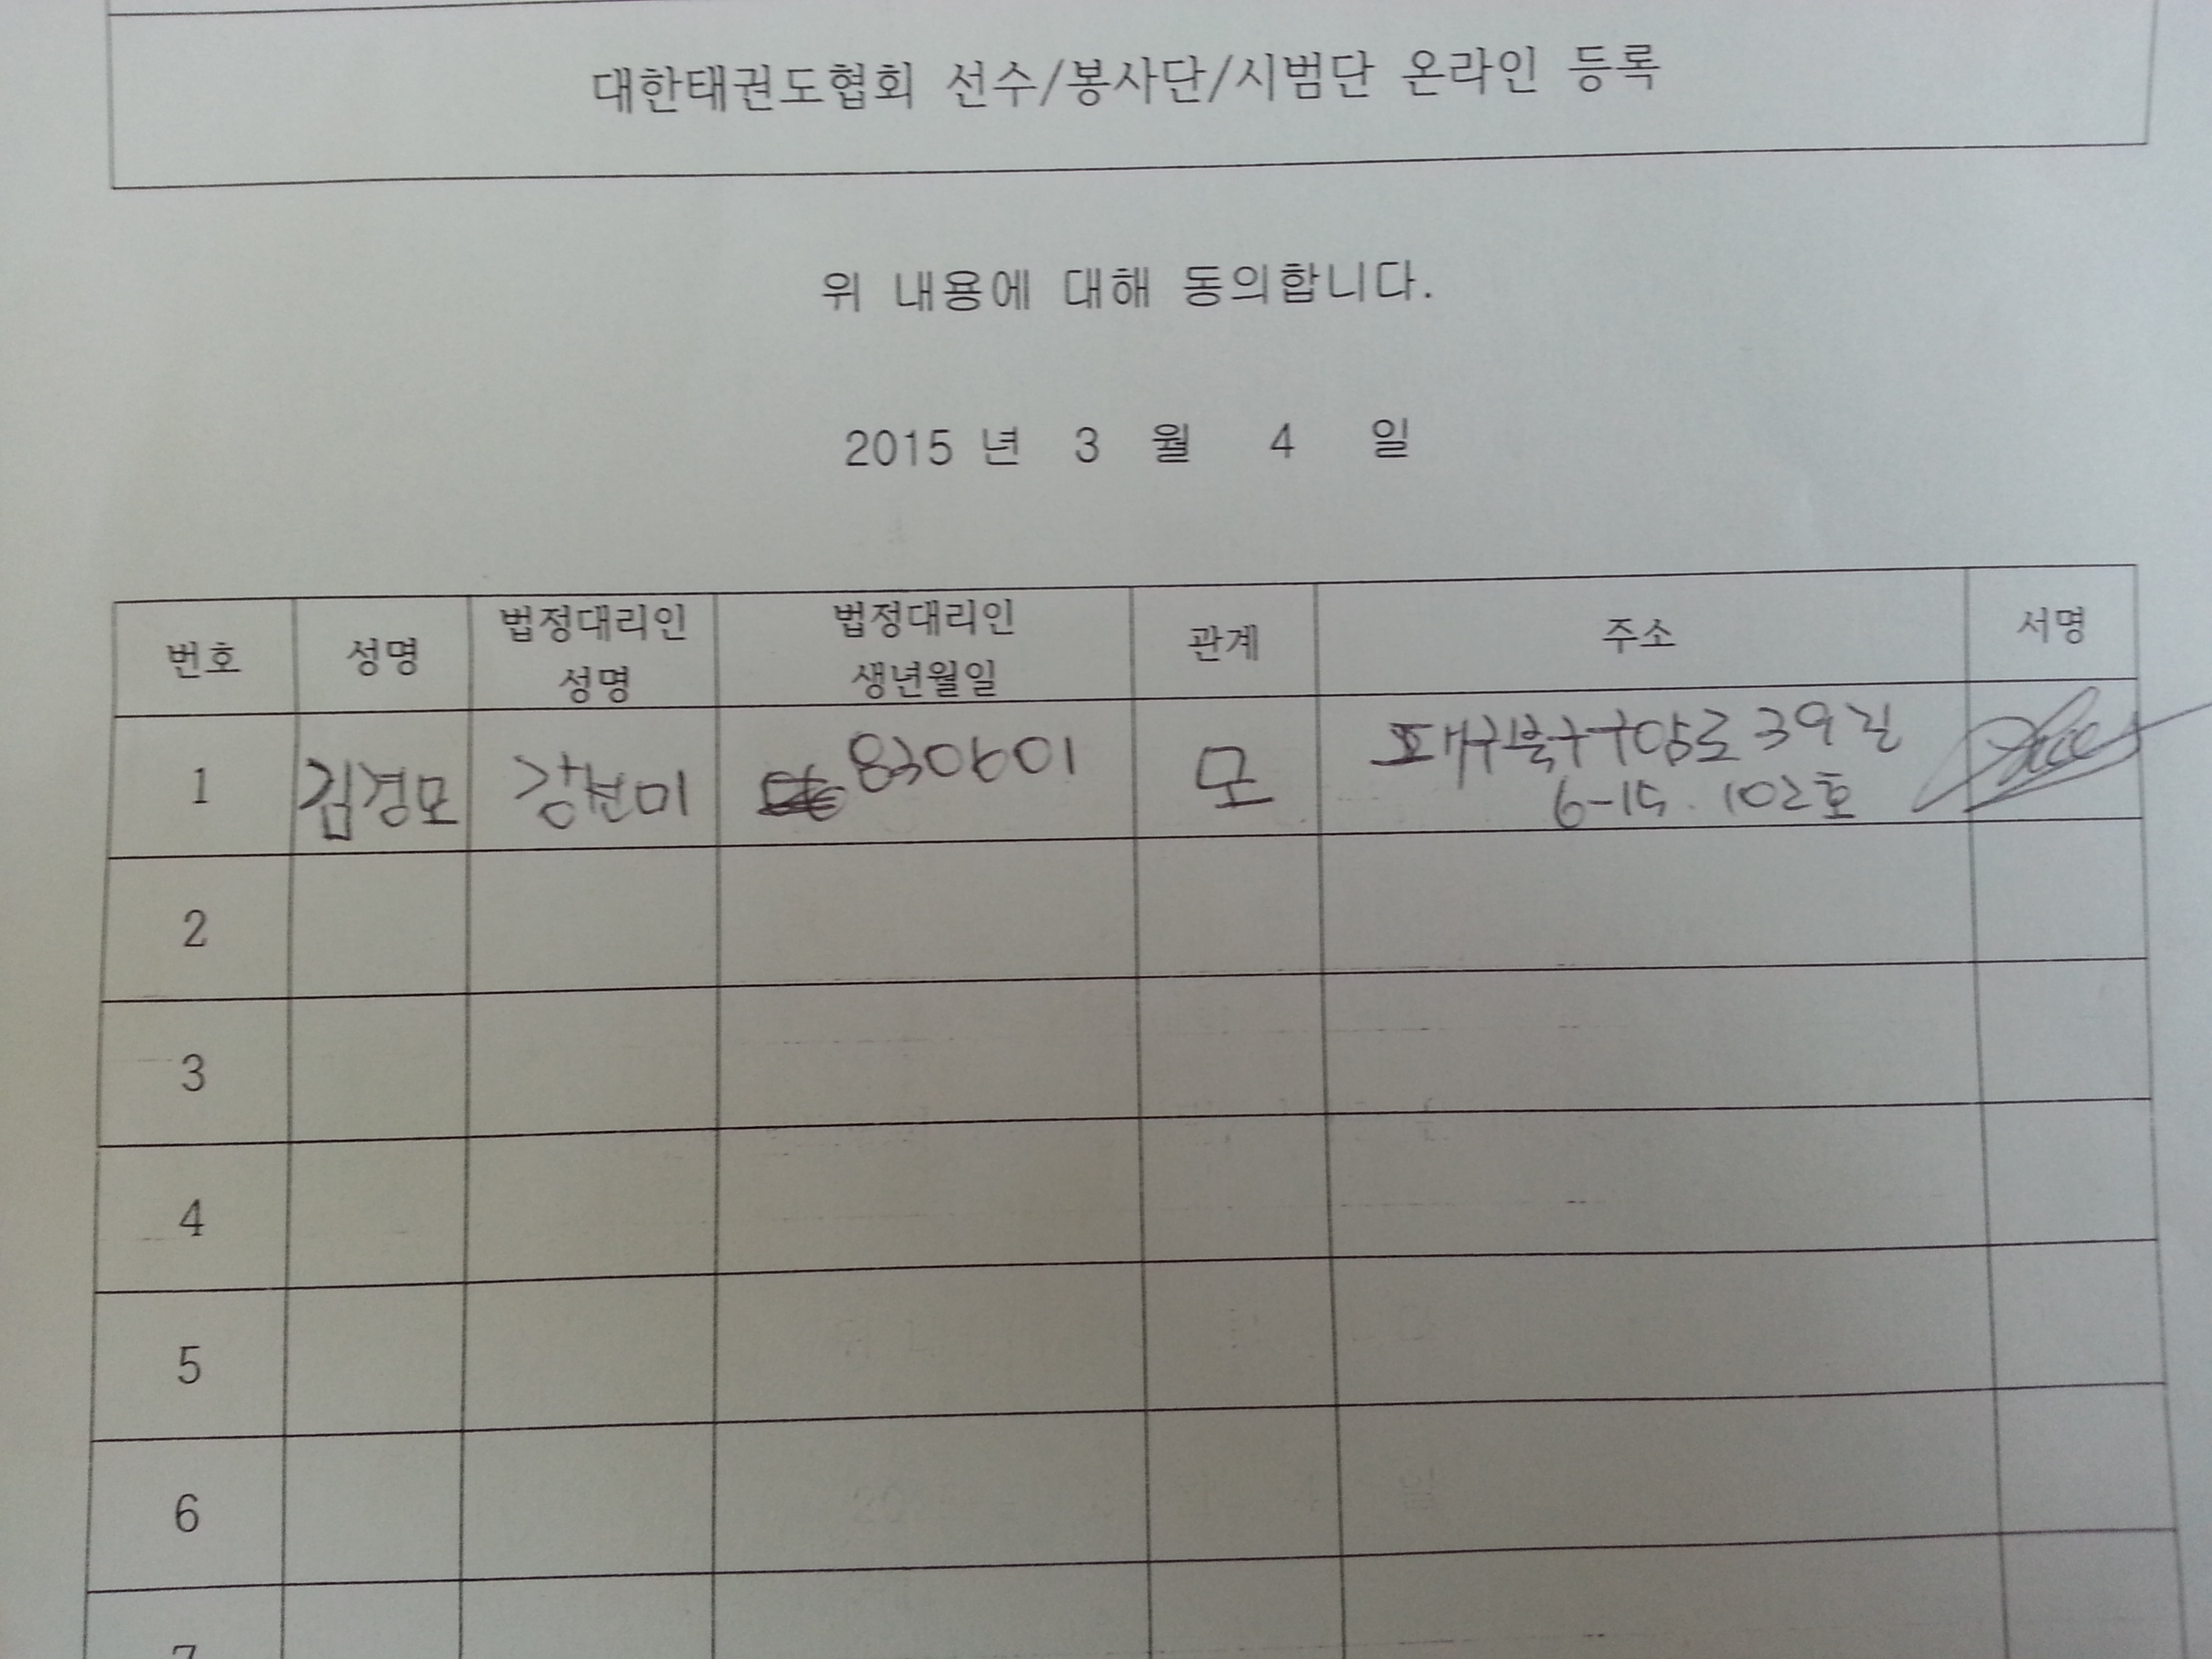 대한태권도협회 선수/봉사단/시범단 온라인 등록
위 내용에 대해 동의합니다.
2015 년 3 월 4 일
번호 성명 법정대리인 성명 법정대리인 생년월일 관계 주소 서명
1 김경모 830901 모 대구북구구암로39길
6-15. 102호
2
3
4
5
6
7